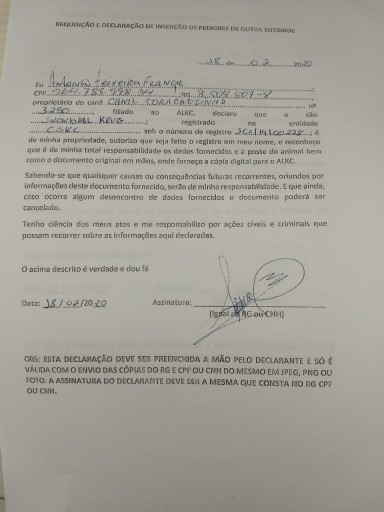 REQUISIÇÃO E DECLARAÇÃO DE INSERÇÃO DE PEDIGREE DE OUTRA ENTIDADE
18 de 02 2020
Eu Antonio Teixeira França
CPF RG
proprietário do canil CANIL CORACAOZINHO nº
3290, filiado ao ALKC, declaro que o cão
SNOWBALL KRUG; registrado na entidade
sob o número de registro; é
de minha propriedade, autorizo que seja feito o registro em meu nome, e reconheço
que é de minha total responsabilidade os dados fornecidos e a posse do animal bem
como o documento original em mãos, onde forneço a cópia digital para o ALKC.
Sabendo-se que quaisquer causas ou consequências futuras recorrentes, oriundos por
informações deste documento fornecido, serão de minha responsabilidade. E que ainda,
caso ocorra algum desencontro de dados fornecidos o documento poderá ser
cancelado.
Tenho ciência dos meus atos e me responsabilizo por ações cíveis e criminais que
possam recorrer sobre as informações aqui declaradas.
O acima descrito é verdade e dou fé
Data: 18/02/2020 Assinatura:
(Igual ao RG ou CNH)
OBS: ESTA DECLARAÇÃO DEVE SER PREENCHIDA A MÃO PELO DECLARANTE E SÓ É
VÁLIDA COM O ENVIO DAS CÓPIAS DO RG E CPF OU CNH DO MESMO EM JPEG, PNG OU
FOTO. A ASSINATURA DO DECLARANTE DEVE SER A MESMA QUE CONSTA NO RG CPF
OU CNH.